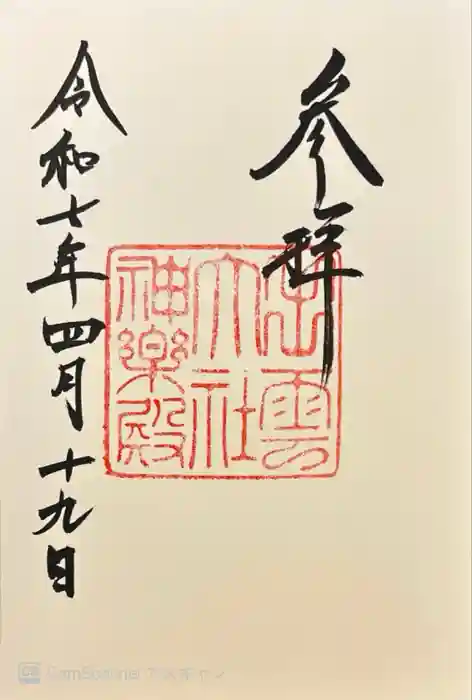 参拝
出雲
大社
神楽殿
令和七年四月十九日
CS CamScanner でスキャン